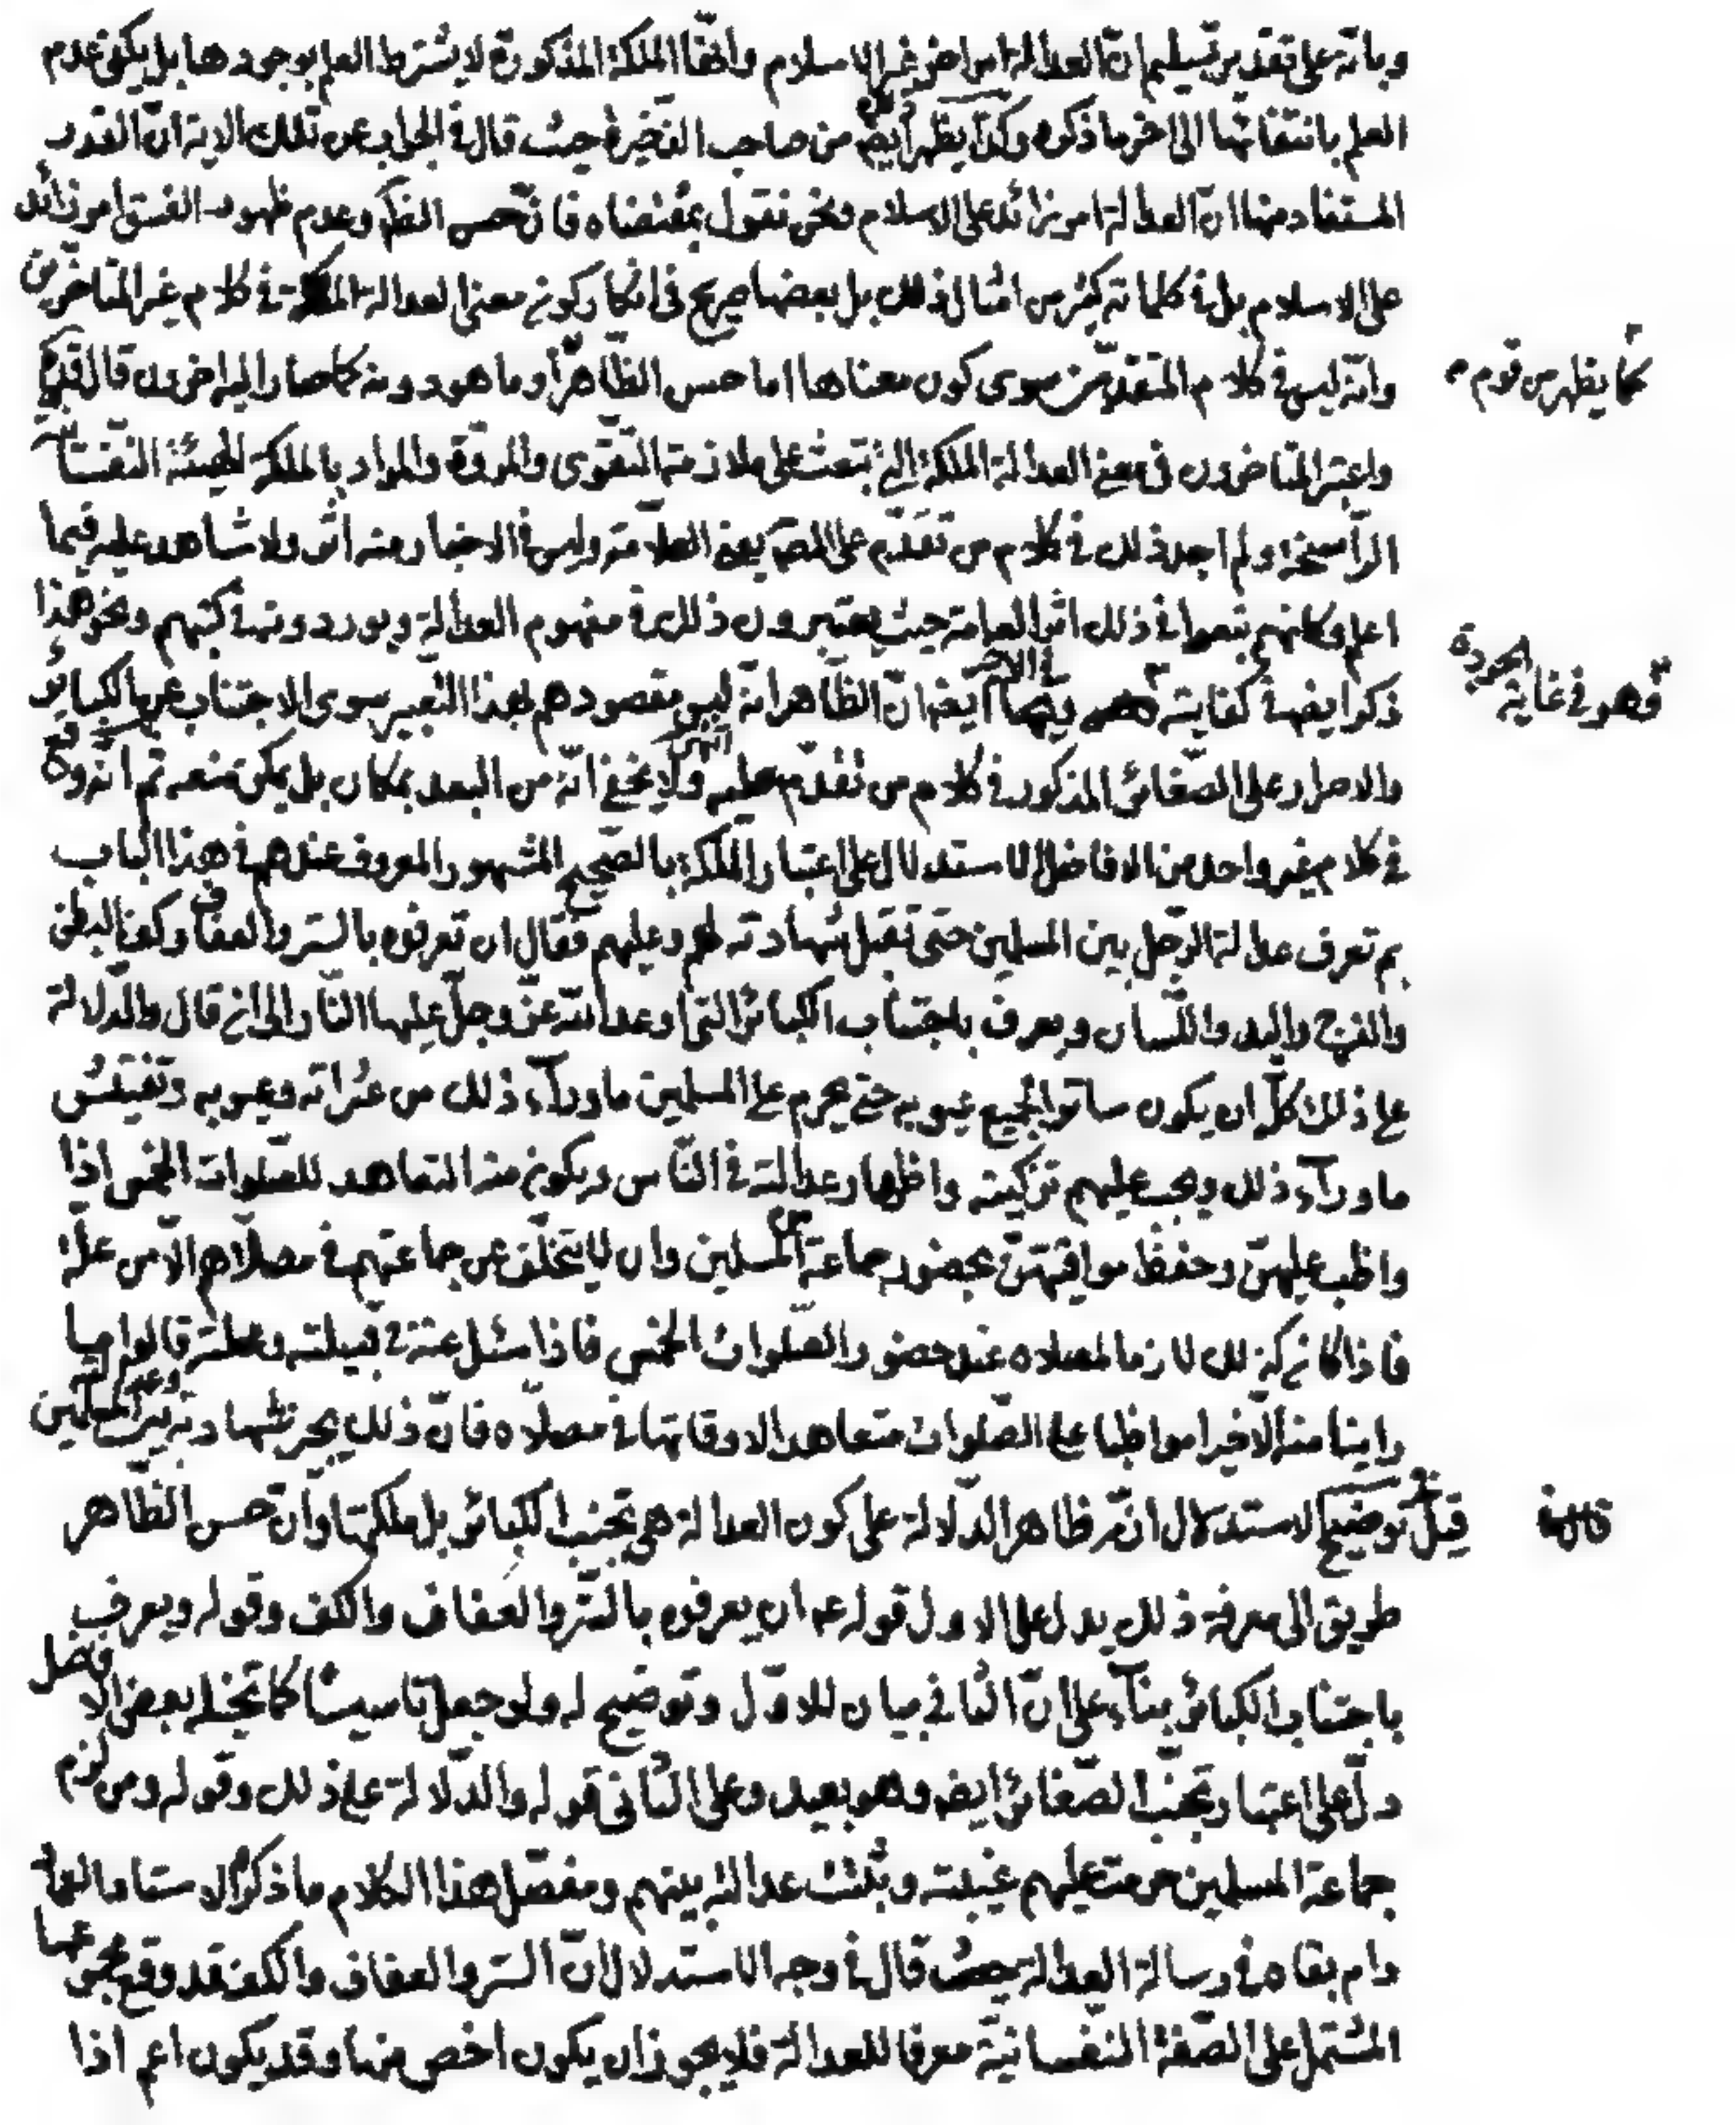 وبانه على تقدير تسليم ان العدالة امر اخر غير الاسلام وانها الملكة المذكورة لا يشترط العلم بوجودها بل يكفى عدم
العلم بانتفائها الى اخر ما ذكره وكذا يظهر ايض من صاحب الذخيرة حيث قال فى الجواب عن تلك الاية ان القدر
المستفاد منها ان العدالة امر زائد على الاسلام ونحن نقول بمقتضاه فان حسن الظاهر وعدم ظهور الفسق امر زائد
على الاسلام بل فى كلماته كثير من امثال ذلك بل بعضها صريح فى انكار كونه معنى العدالة الملكة فى كلام غير المتاخرين
كما يظهر من قوم
وانه ليس فى كلام المتقدمين سوى كون معناها اما حسن الظاهر او ما هو دونه كما صار اليه اخرون قال
واعتبر المتاخرون فى معنى العدالة الملكة التى تبعث على ملازمة التقوى والمروة والمراد بالملكة الهيئة النفسانية
الراسخة ولم اجد ذلك فى كلام من تقدم على المص يعنى العلامة وليس فى الاخبار منه اثر ولا شاهد عليه فيما
اعلم وكانهم تبعوا فى ذلك اثر العامة حيث يعتبرون ذلك فى مفهوم العدالة ويوردونه فى كتبهم ونحو هذا
فهو فى غاية الجودة
ذكر ايض فى كفايته ايض ان الظاهر انه ليس مقصودهم بهذا التعبير سوى الاجتناب عن الكبائر
والاصرار على الصغائر المذكور فى كلام من تقدم عليه انتهى ولا يخفى انه من البعد بمكان بل يمكن منعه ثم انه وقع
فى كلام غير واحد من الافاضل الاستدلال على اعتبار الملكة بالصحيح المشهور المعروف عندهم فى هذا الباب
بم تعرف عدالة الرجل بين المسلمين حتى تقبل شهادته لهم وعليهم فقال ان تعرفوه بالستر والعفاف وكف البطن
والفرج واليد واللسان ويعرف باجتناب الكبائر التى اوعد الله عز وجل عليها النار الى ان قال والدلالة
على ذلك كله ان يكون ساترا لجميع عيوبه حتى يحرم على المسلمين ما وراء ذلك من عثراته وعيوبه وتفتيش
ما وراء ذلك ويجب عليهم تزكيته واظهار عدالته فى الناس ويكون منه التعاهد للصلوات الخمس اذا
واظب عليهن وحفظ مواقيتهن بحضور جماعة من المسلمين وان لا يتخلف عن جماعتهم فى مصلاهم الا من علة
فاذا كان كذلك لازما لمصلاه عند حضور الصلوات الخمس فاذا سئل عنه فى قبيلته ومحلته قالوا ما
راينا منه الا خيرا مواظبا على الصلوات متعاهدا لاوقاتها فى مصلاه فان ذلك يجيز شهادته وعدالته بين المسلمين
قيل فى توضيح الاستدلال ان ظاهر الدلالة على كون العدالة هى تجنب الكبائر بل ملكتها وان حسن الظاهر
طريق الى معرفة ذلك يدل على الاول قوله ع ان يعرفوه بالستر والعفاف والكف وقوله ويعرف
باجتناب الكبائر بناء على ان الثانى بيان للاول وتوضيح له ولو جعل تاسيسا كما تخيله بعض الافاضل
دل على اعتبار تجنب الصغائر ايض وهو بعيد وعلى الثانى قوله والدلالة على ذلك وقوله ومن لزم
جماعة المسلمين حرمت عليهم غيبته وثبتت عدالته بينهم ومفصل هذا الكلام ما ذكره الاستاد العلامة
دام بقاه فى رسالة العدالة حيث قال فى وجه الاستدلال ان الستر والعفاف والكف قد وقع مجموعها
المشتمل على الصفة النفسانية معرفا للعدالة فلا يجوز ان يكون اخص منها وقد يكون اعم اذا